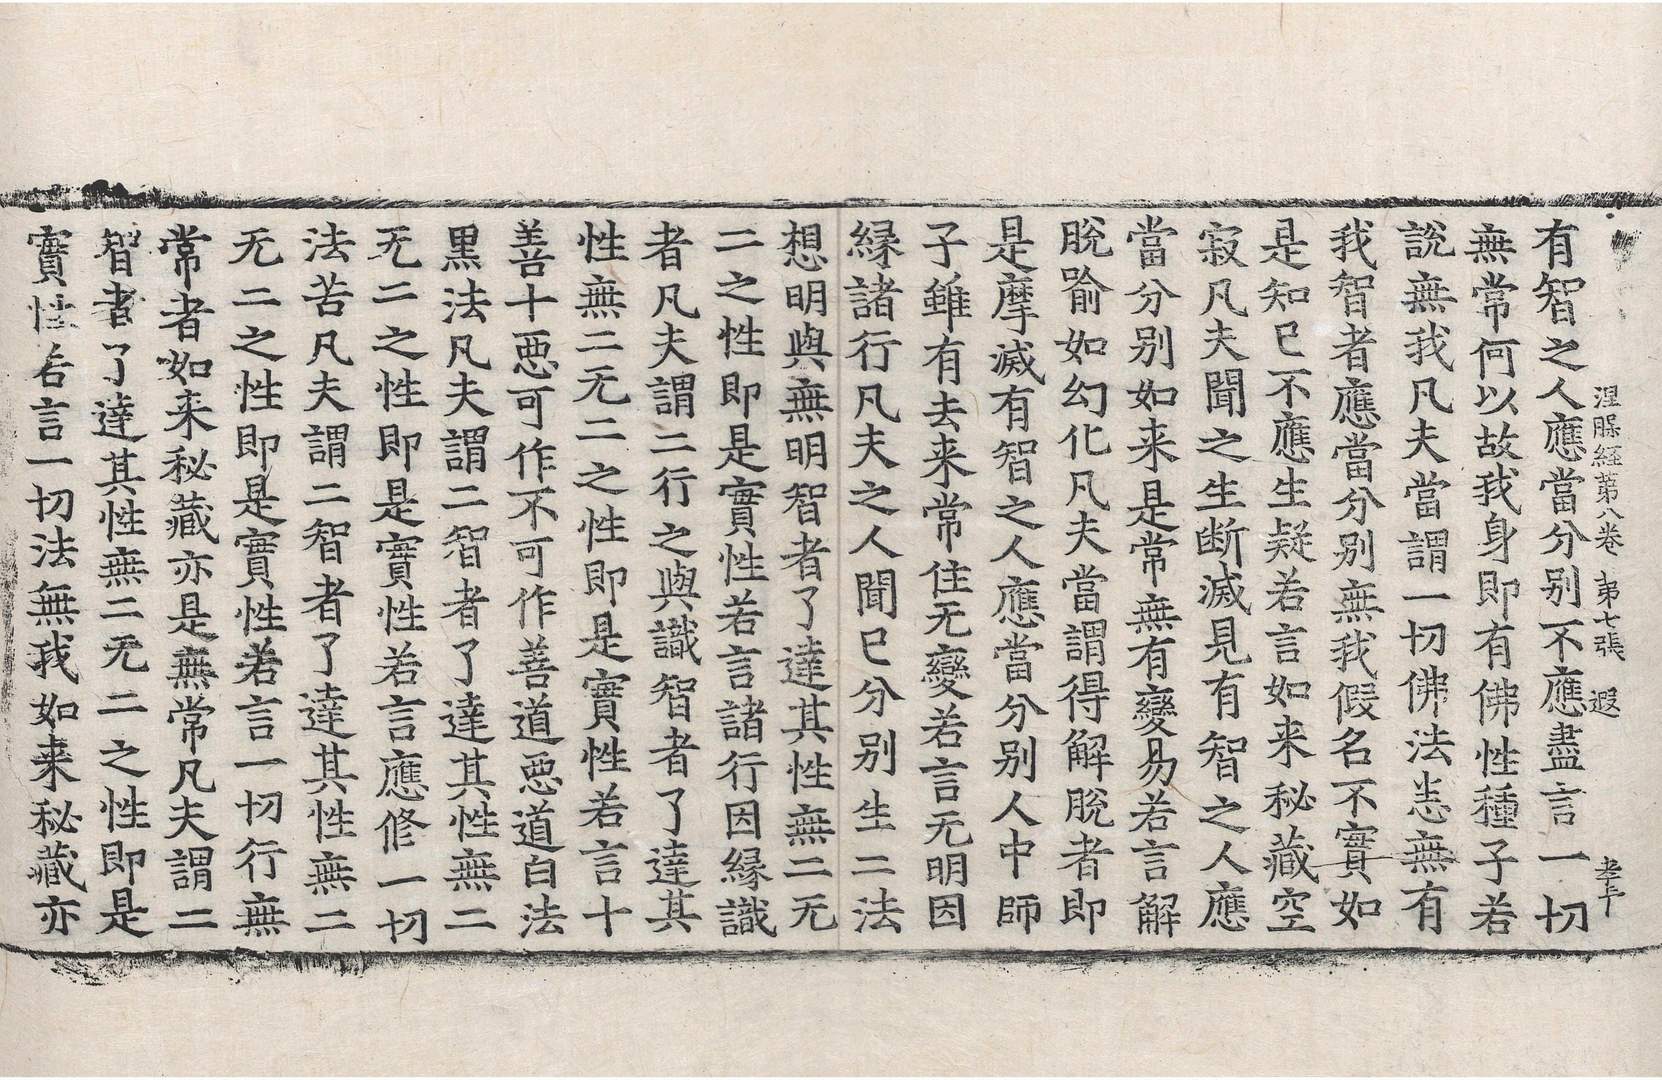 涅槃経第八卷 第七張 遐 孝午
有智之人應當分别不應盡言一切
無常何以故我身即有佛性種子若
說無我凡夫當謂一切佛法悉無有
我智者應當分别無我假名不實如
是知已不應生疑若言如来秘藏空
寂凡夫聞之生断滅見有智之人應
當分别如来是常無有變易若言解
脫喻如幻化凡夫當謂得解脫者即
是摩滅有智之人應當分别人中師
子雖有去来常住无變若言无明因
縁諸行凡夫之人聞已分别生二法
想明與無明智者了達其性無二无
二之性即是實性若言諸行因縁識
者凡夫謂二行之與識智者了達其
性無二无二之性即是實性若言十
善十惡可作不可作善道惡道白法
黒法凡夫謂二智者了達其性無二
无二之性即是實性若言應修一切
法苦凡夫謂二智者了達其性無二
无二之性即是實性若言一切行無
常者如来秘藏亦是無常凡夫謂二
智者了達其性無二无二之性即是
實性若言一切法無我如来秘藏亦